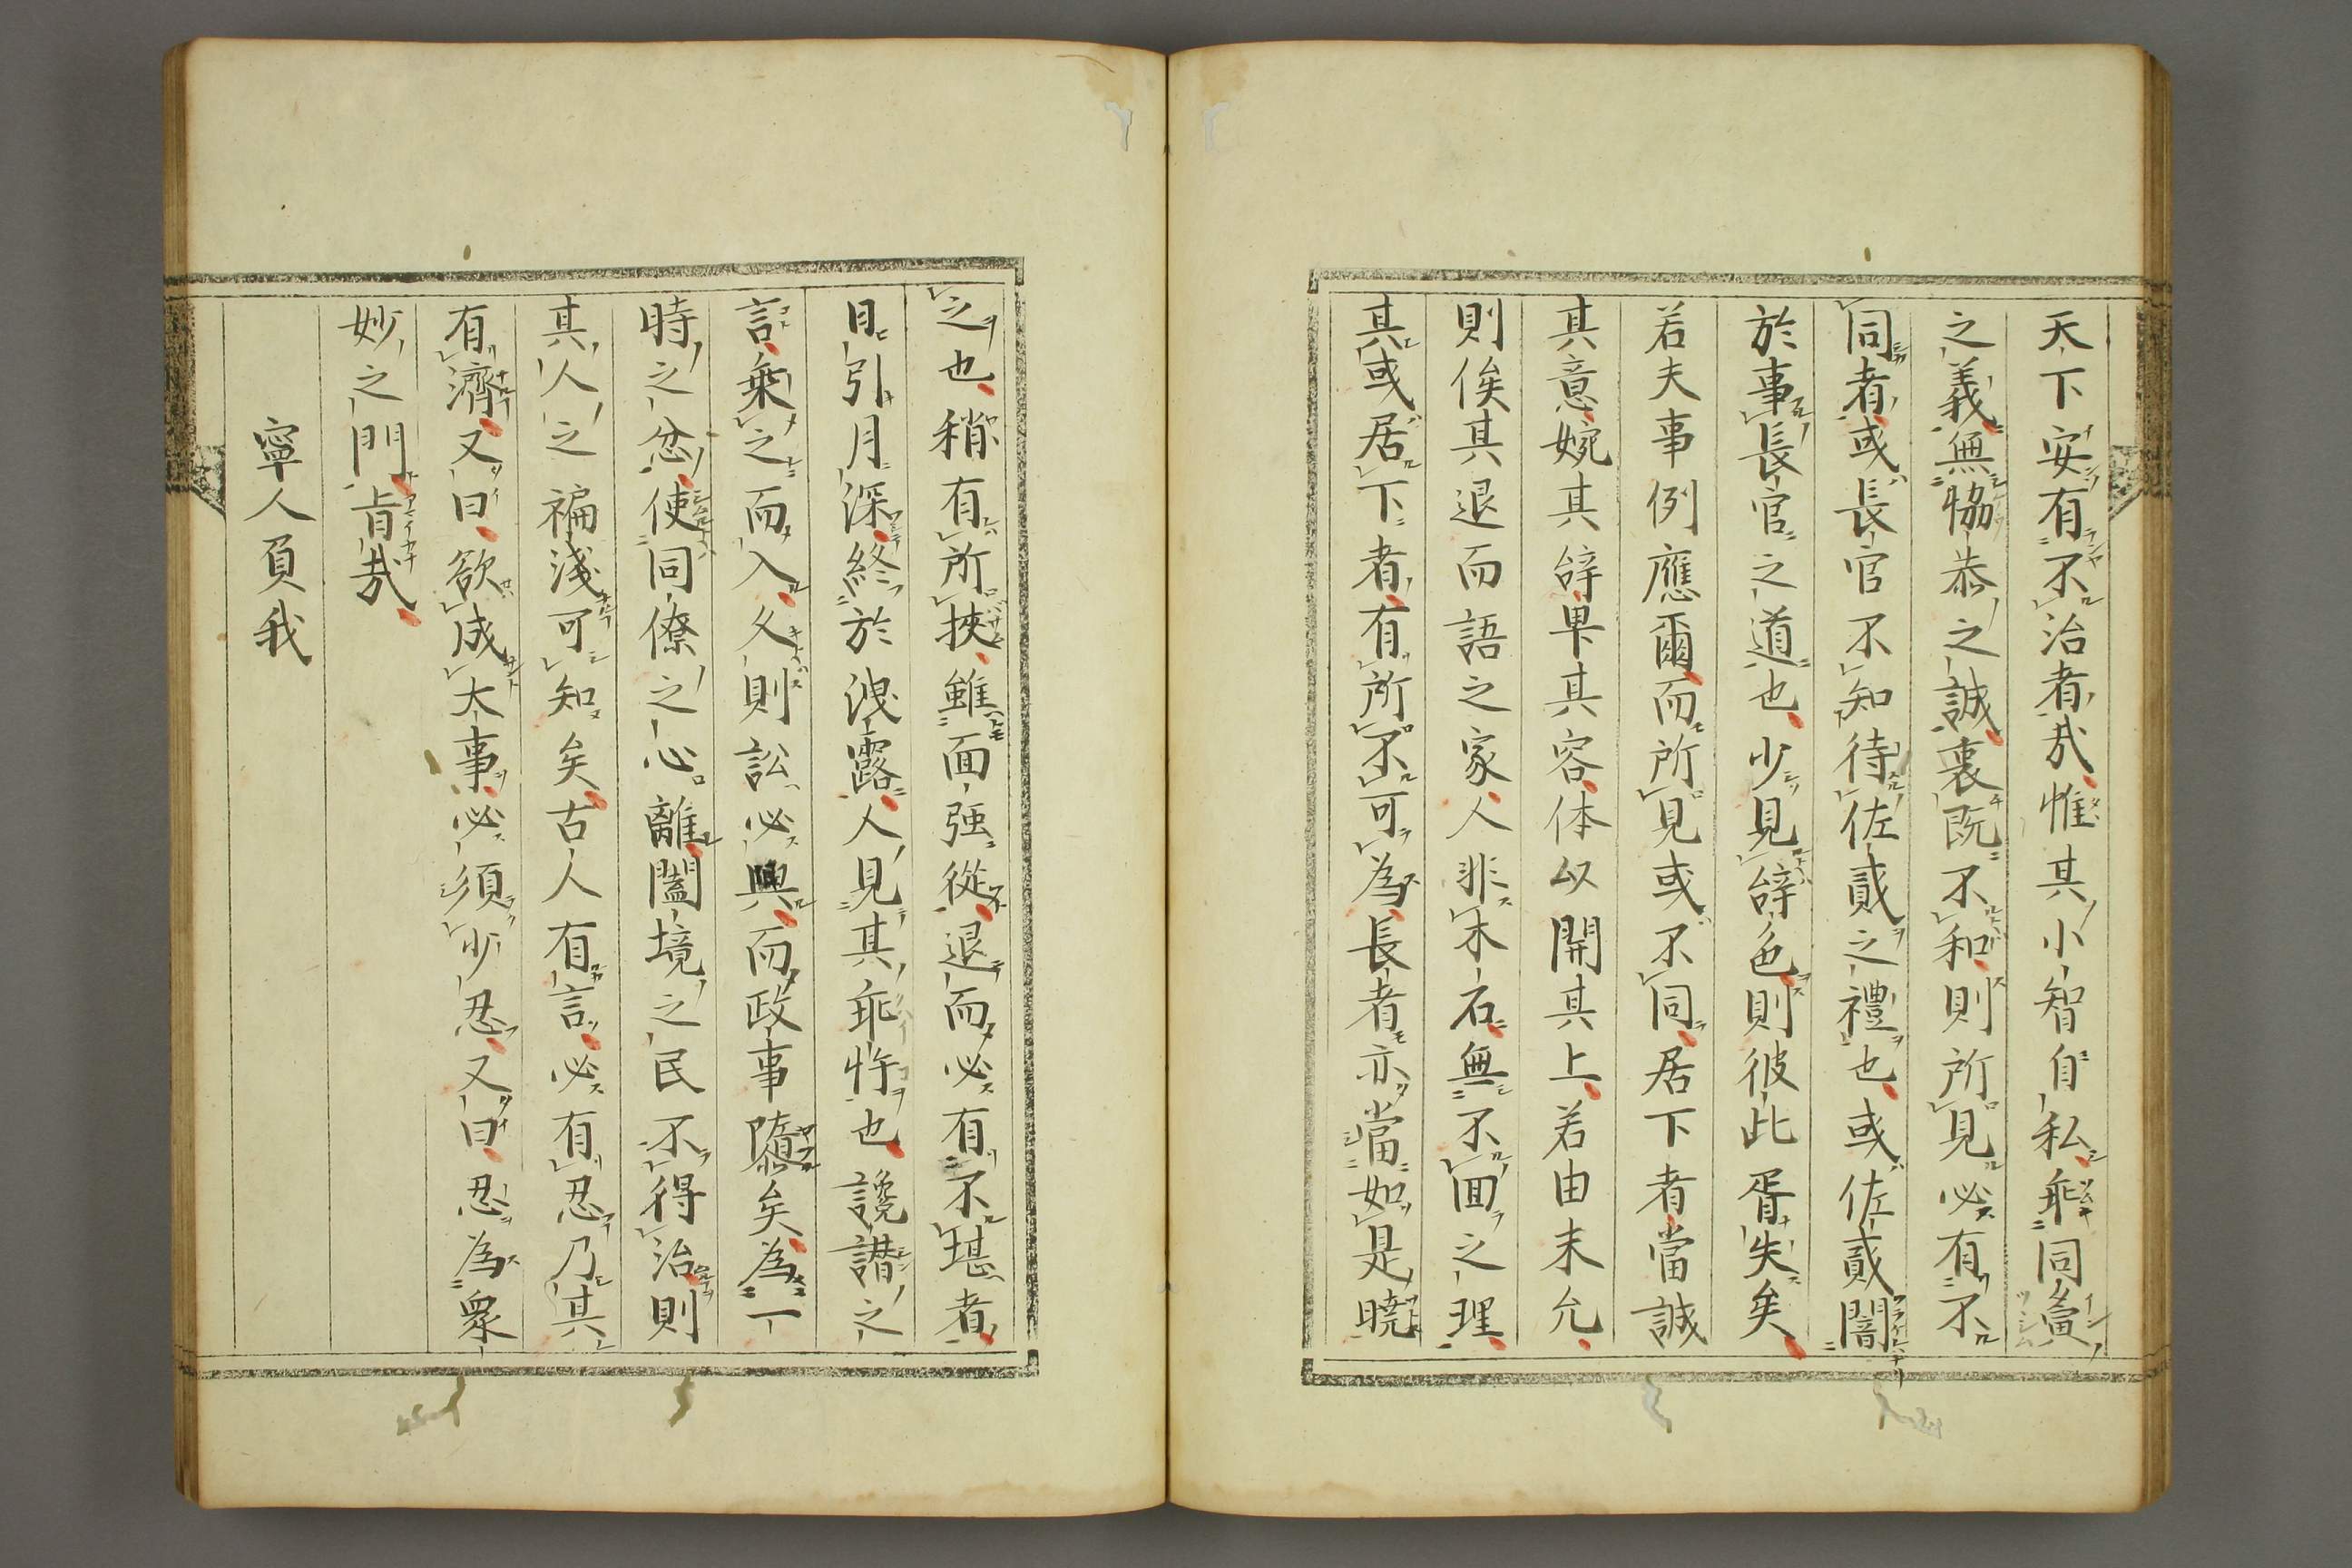 天下安有不治者哉惟其小智自私乖同寅
之義無恊恭之誠裏既不和則所見必有不
同者或長官不知待佐貳之禮也或佐貳闇
於事長官之道也少見辞色則彼此胥失矣
若夫事例應爾而所見或不同居下者當誠
其意婉其辞卑其容体以開其上若由未允
則俟其退而語之家人非木石無不回之理
其或居下者有所不可為長者亦當如是曉
之也稍有所挾雖面强從退而必有不堪者
日引月深終於洩露人見其乖忤也讒譖之
言乗之而入久則訟必興而政事隳矣為一
時之忿使同僚之心離闔境之民不得治則
其人之褊淺可知矣古人有言必有忍乃其
有濟又曰欲成大事必須少忍又曰忍為衆
妙之門旨哉
寧人負我